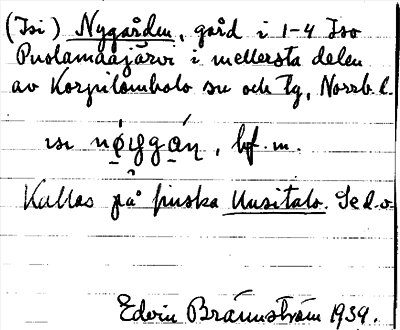 (Isi) Nygården, gård i 1-4 Iso
Puolamaajärvi i mellersta delen
av Korpilombolo sn och tg, Norrb. l.
isi bf. m.
Kallas på finska Uusitalo. Se d. o.
Edvin Brännström 1939.